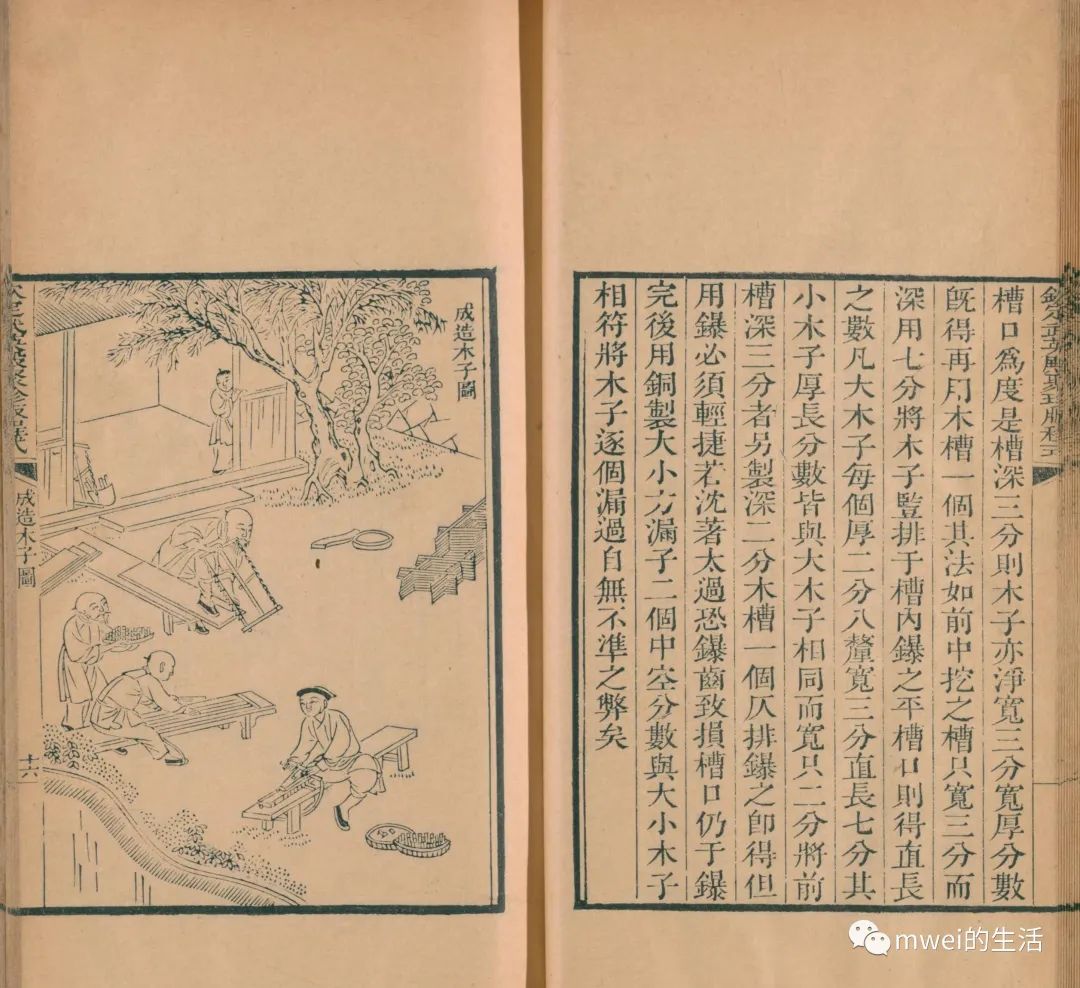 欽定武英殿聚珍版程式
槽口爲度是槽深三分則木子亦淨寬三分寬厚分數
旣得再用木槽一個其法如前中挖之槽只寬三分而
深用七分將木子豎排于槽內鑤之平槽口則得直長
之數凡大木子每個厚二分八釐寬三分直長七分其
小木子厚長分數皆與大木子相同而寬只二分將前
槽深三分者另製深二分木槽一個仄排鑤之卽得但
用鑤必須輕捷若沈著太過恐鑤齒致損槽口仍于鑤
完後用銅製大小方漏子二個中空分數與大小木子
相符將木子逐個漏過自無不準之弊矣
成造木子圖
欽定武英殿聚珍版程式
成造木子圖
十六
mwei的生活